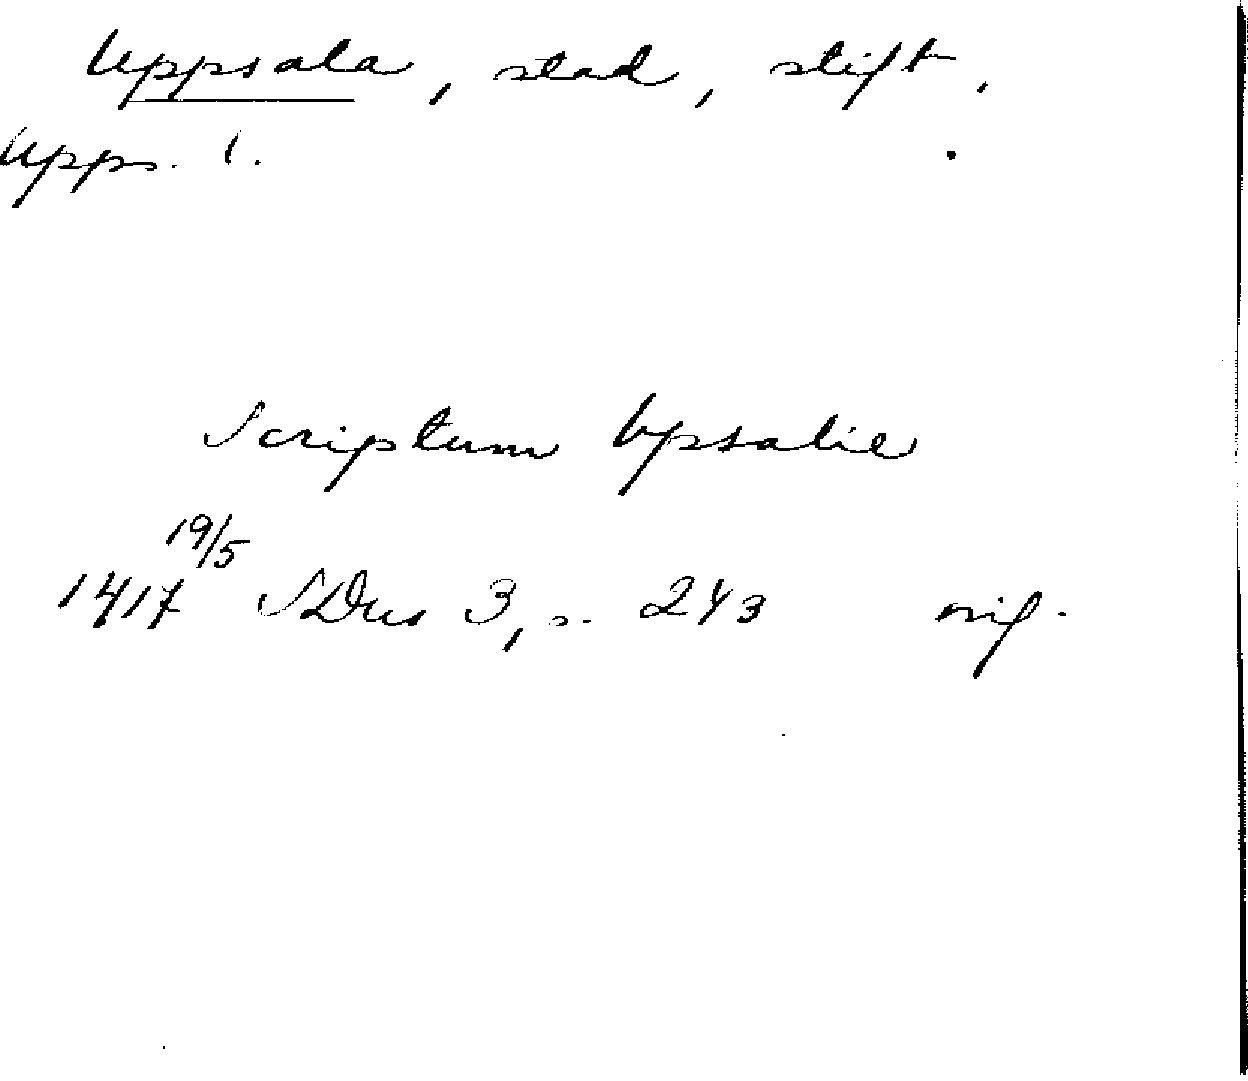 Uppsala, stad, stift,
Upps. l.
Scriptum Vpsalie
19/5
1417 SDns 3, s. 243 orig.